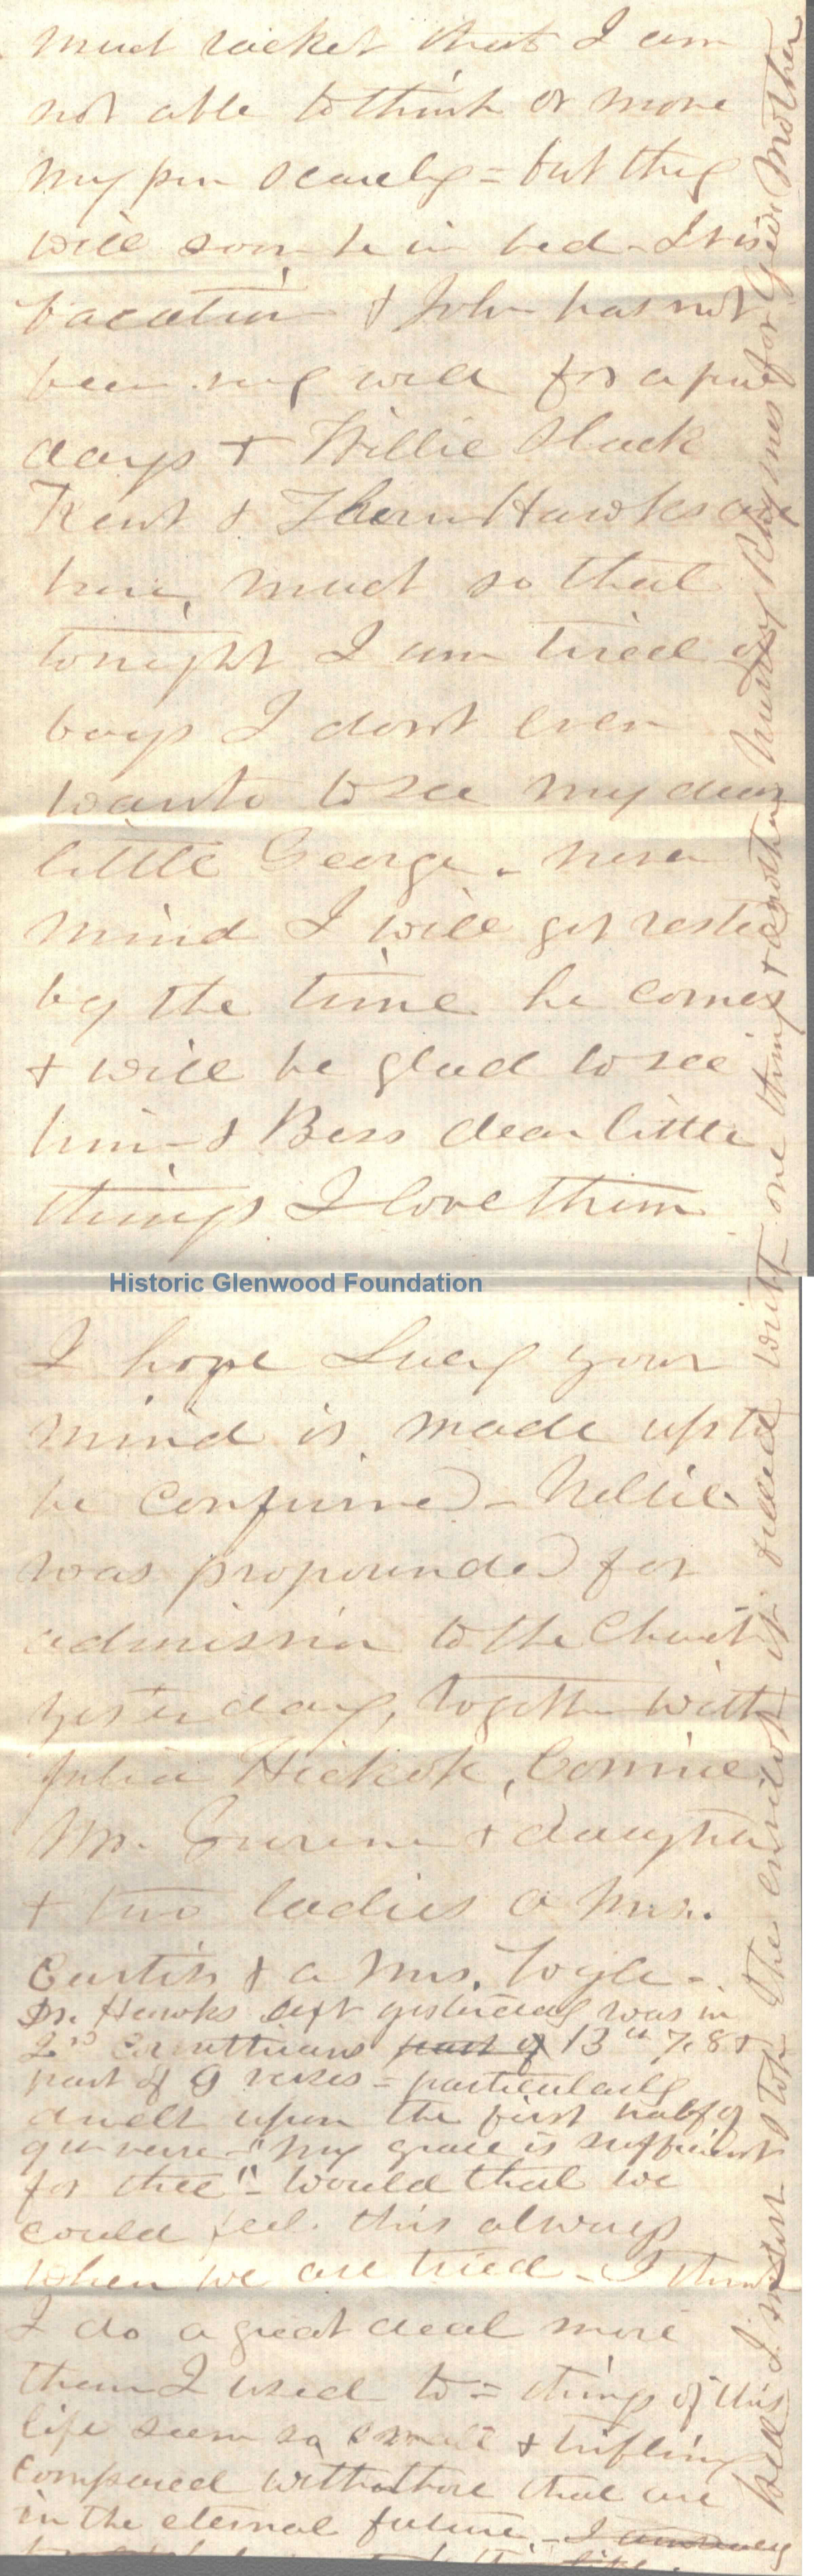 much racket that I am
not able to think or move
my pen scarcely = but they
will soon be in bed - It is
vacation & John has not
been very well for a few
days & Willie Slack
Kent & Thern Hawks are
here, much so that
tonight I am tired of
boys I don't even
want to see my dear
little George - never
mind I will get rested
by the time he comes
& will be glad to see
him - & Bess dear little
things I love them
Historic Glenwood Foundation
I hope Lucy your
mind is made up to
be confirmed - Nellie
was propounded for
admission to the Church
yesterday, together with
Julia Hickok, Connie
Mr. & daughter
& two ladies a Mrs.
Curtis & a Mrs.
Dr. Hawks text yesterday was in
2nd Corinthians part of 13th 7. 8 &
part of 9 verses = particularly
dwelt upon the first half of
9th verse - "My grace is sufficient
for thee" - Would that we
could feel this always
when we are tried - I think
I do a great deal more
than I used to = things of this
life seem so small & trifling
compared with those that are
in the eternal future -
Well I must stop the envelope is filled with one thing & another Nursery Rhymes for your Mother